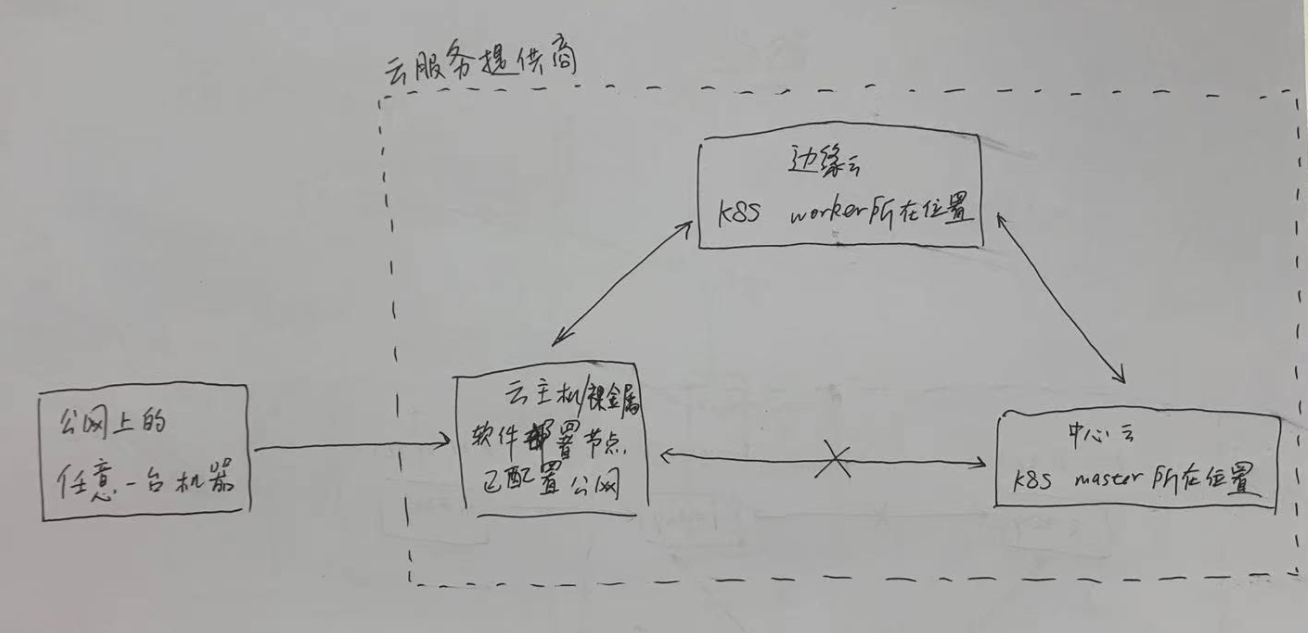 云服务提供商
边缘云
K8S worker所在位置
公网上的
任意一台机器
云主机/裸金属
软件部署节点
已配置公网
中心云
K8S master所在位置